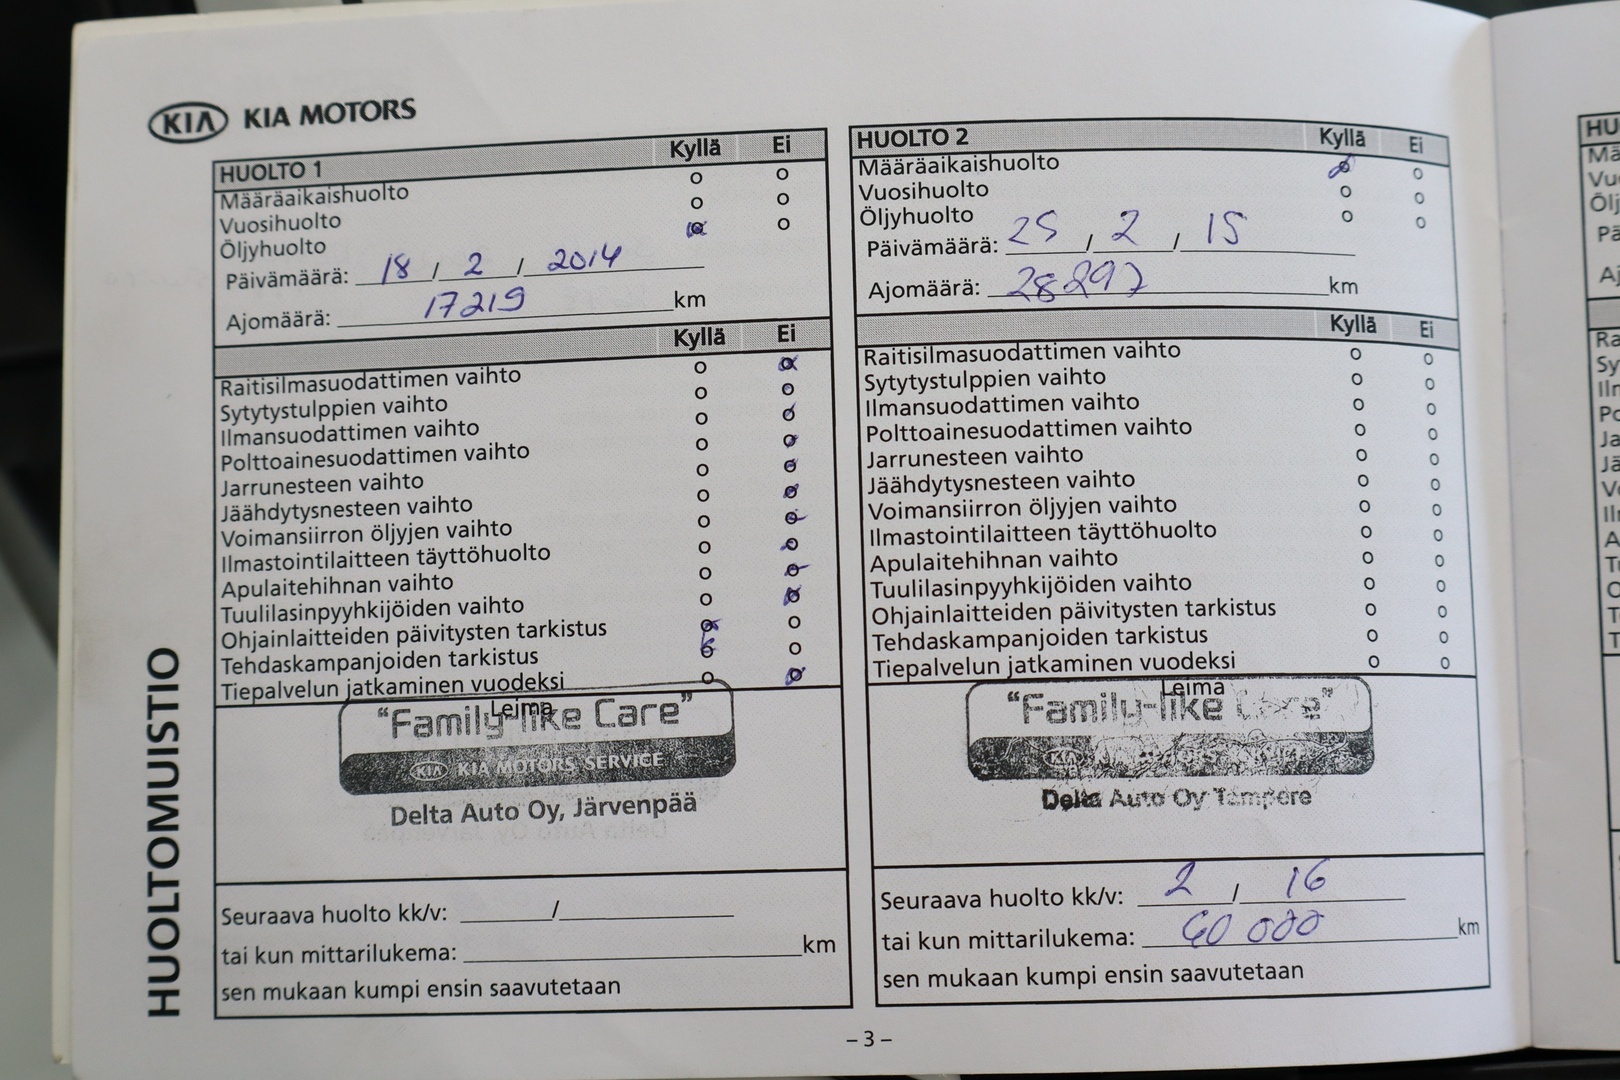 KIA KIA MOTORS
HUOLTOMUISTIO
HUOLTO 1 Kyllä Ei
Määräaikaishuolto o o
Vuosihuolto o o
Öljyhuolto o o
Päivämäärä: 18 / 2 / 2014
Ajomäärä: 17219 km
Kyllä Ei
Raitisilmasuodattimen vaihto o o
Sytytystulppien vaihto o o
Ilmansuodattimen vaihto o o
Polttoainesuodattimen vaihto o o
Jarrunesteen vaihto o o
Jäähdytysnesteen vaihto o o
Voimansiirron öljyjen vaihto o o
Ilmastointilaitteen täyttöhuolto o o
Apulaitehihnan vaihto o o
Tuulilasinpyyhkijöiden vaihto o o
Ohjainlaitteiden päivitysten tarkistus o o
Tehdaskampanjoiden tarkistus o o
Tiepalvelun jatkaminen vuodeksi o o
Leima
"Family-like Care"
KIA KIA MOTORS SERVICE
Delta Auto Oy, Järvenpää
Seuraava huolto kk/v: /
tai kun mittarilukema: km
sen mukaan kumpi ensin saavutetaan
HUOLTO 2 Kyllä Ei
Määräaikaishuolto o o
Vuosihuolto o o
Öljyhuolto o o
Päivämäärä: 25 / 2 / 15
Ajomäärä: 28297 km
Kyllä Ei
Raitisilmasuodattimen vaihto o o
Sytytystulppien vaihto o o
Ilmansuodattimen vaihto o o
Polttoainesuodattimen vaihto o o
Jarrunesteen vaihto o o
Jäähdytysnesteen vaihto o o
Voimansiirron öljyjen vaihto o o
Ilmastointilaitteen täyttöhuolto o o
Apulaitehihnan vaihto o o
Tuulilasinpyyhkijöiden vaihto o o
Ohjainlaitteiden päivitysten tarkistus o o
Tehdaskampanjoiden tarkistus o o
Tiepalvelun jatkaminen vuodeksi o o
Leima
"Family-like Care"
KIA
Delta Auto Oy Tampere
Seuraava huolto kk/v: 2 / 16
tai kun mittarilukema: 60 000 km
sen mukaan kumpi ensin saavutetaan
– 3 –